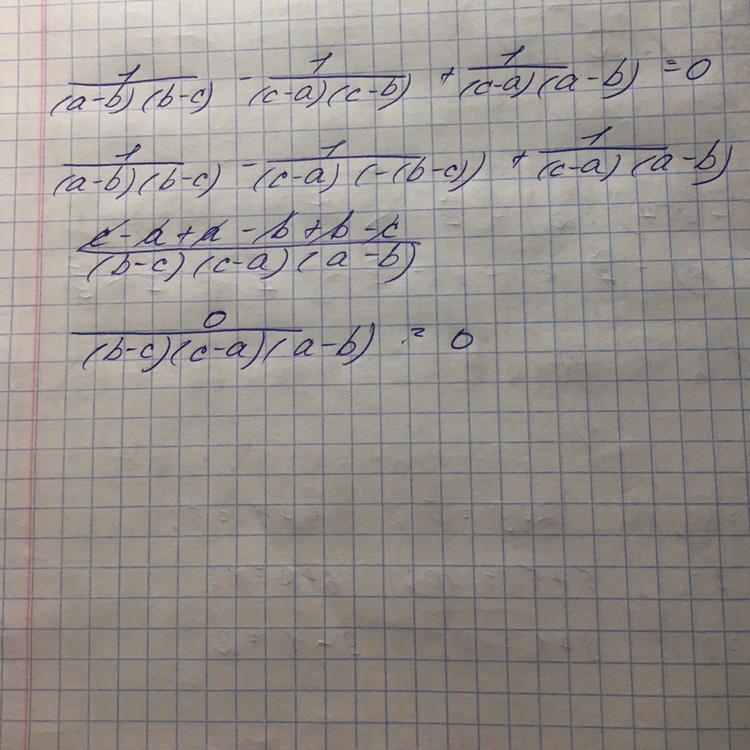 1/((a-b)(b-c)) - 1/((c-a)(c-b)) + 1/((c-a)(a-b)) = 0
1/((a-b)(b-c)) - 1/((c-a)(-(b-c))) + 1/((c-a)(a-b))
(c-a+a-b+b-c)/((b-c)(c-a)(a-b))
0/((b-c)(c-a)(a-b)) = 0